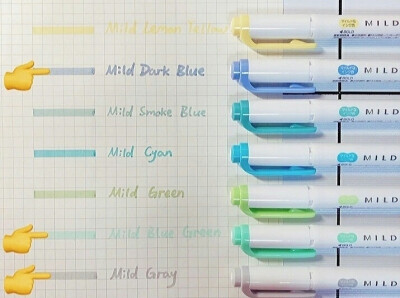 Mild Lemon Yellow
MILD
Mild Dark Blue
MILD
Mild Smoke Blue
MILD
Mild Cyan
MILD
Mild Green
MILD
Mild Blue Green
MILD
Mild Gray
MILD